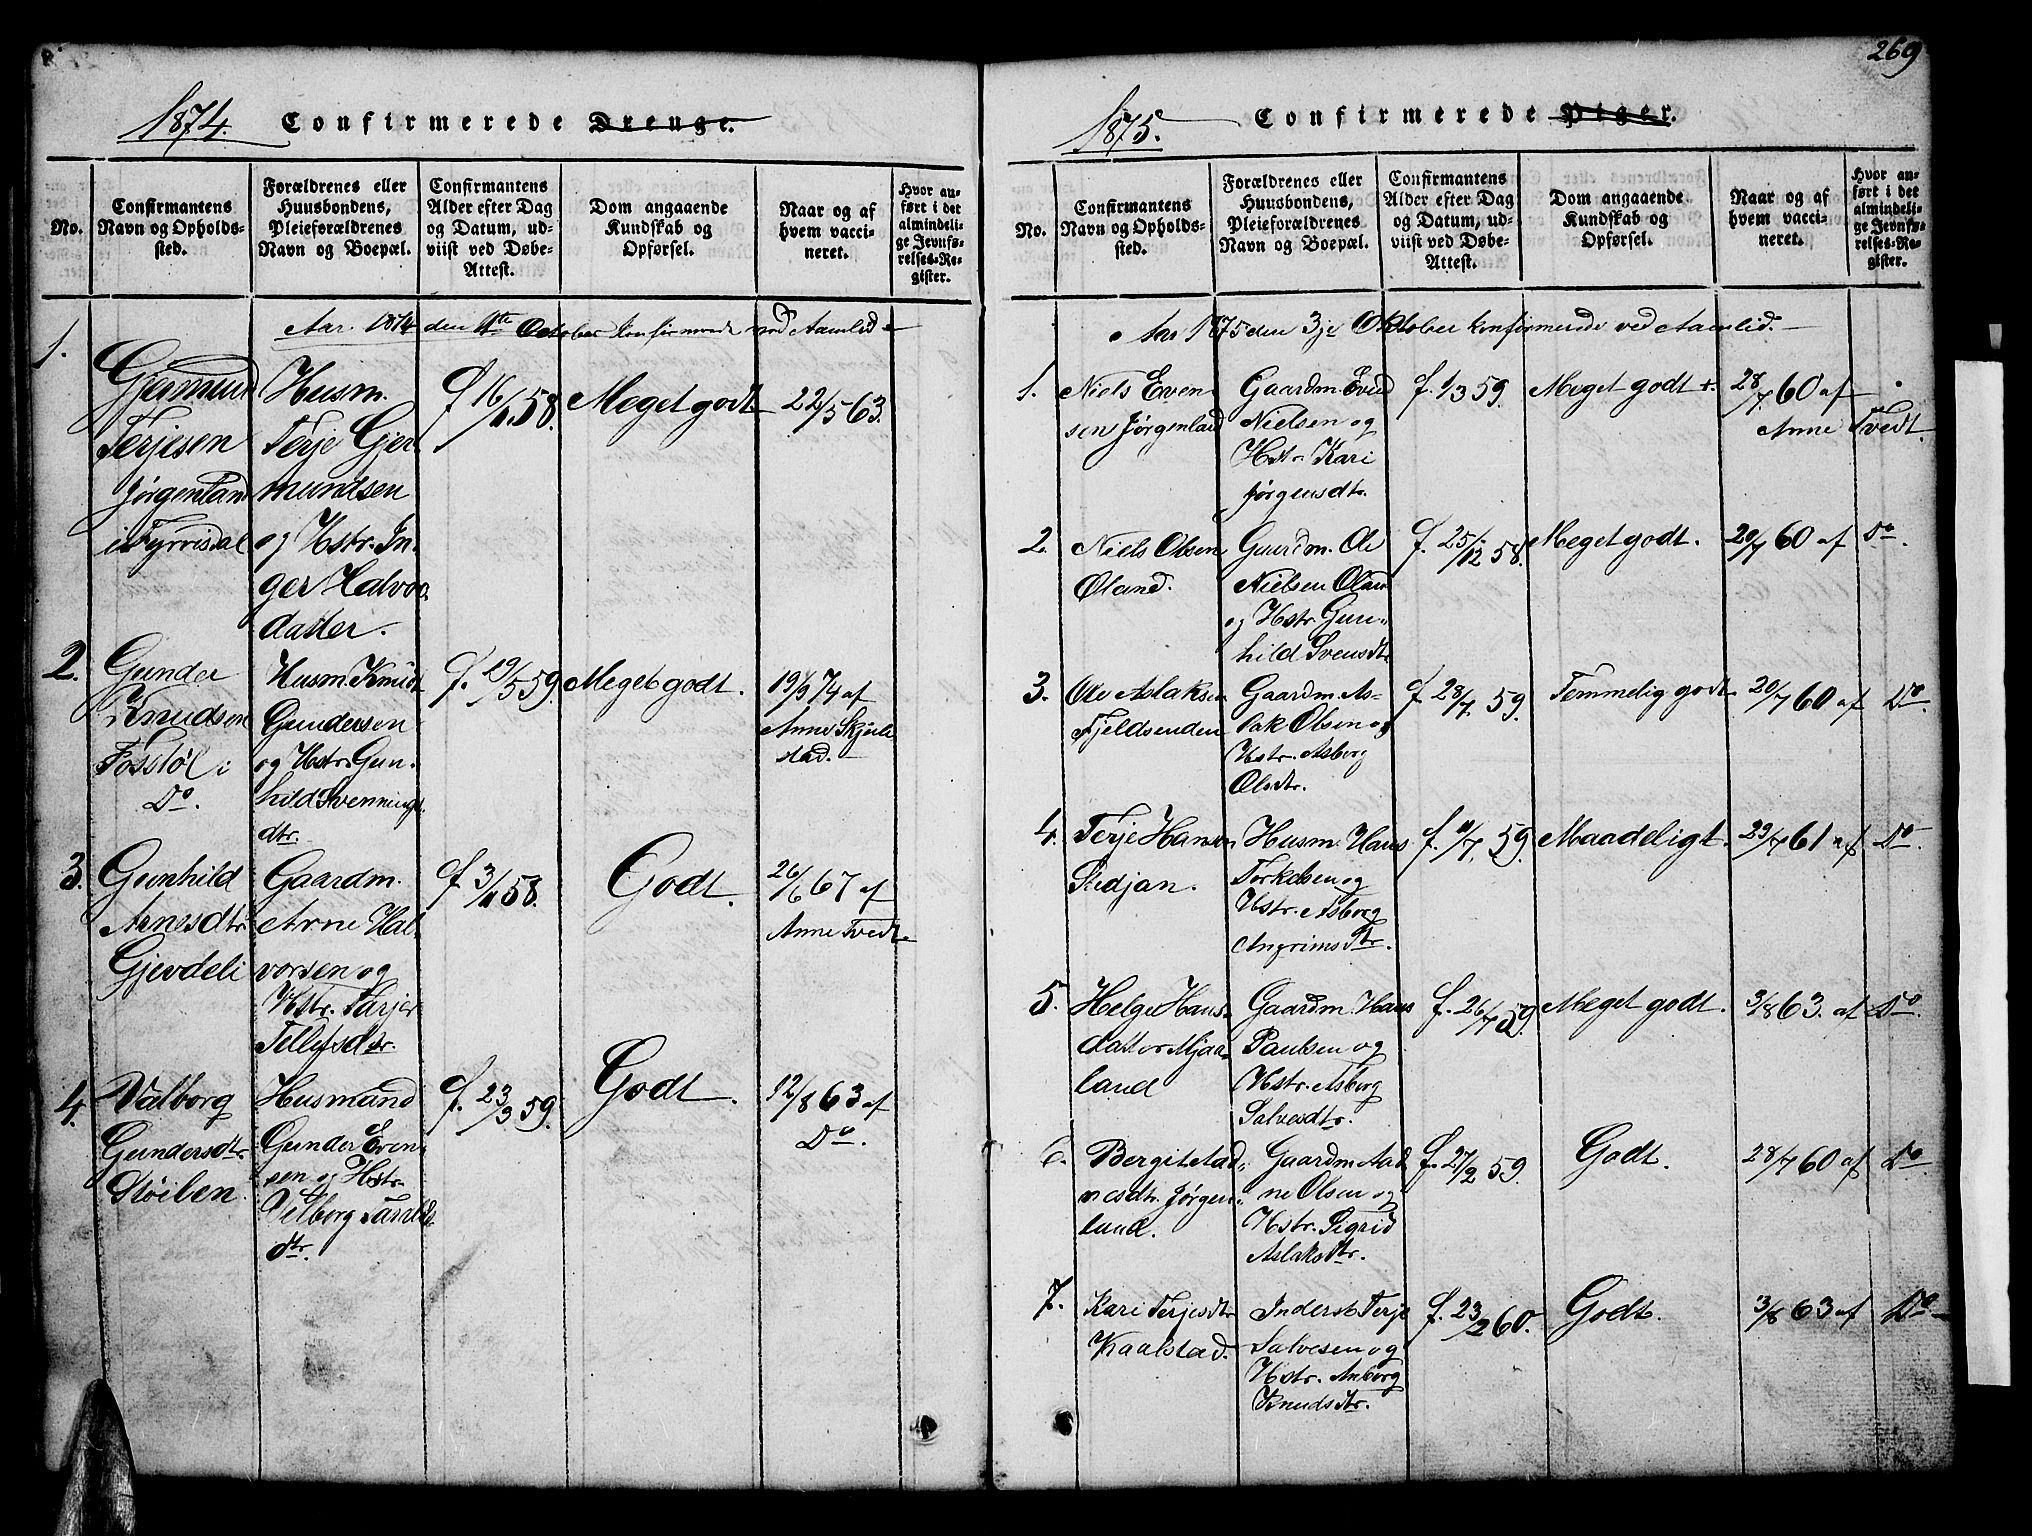 269
1874. Confirmerede Drenge.
No.
Confirmantens Navn og Opholds-sted.
Forældrenes eller Huusbondens, Pleieforældrenes Navn og Boepæl.
Confirmantens Alder efter Dag og Datum, ud-viist ved Døbe-Attest.
Dom angaaende Kundskab og Opførsel.
Naar og af hvem vacci-neret.
Hvor an-ført i det almindeli-ge Jevnfø-relses-Re-gister.
Aar 1874 den 4de October konfirmerede ved Aamlid
1.
Gjermund
Terjesen
Jørgenland
i Fyrrisdal
Husm.
Terje Gjer
mundsen
og Hstr. In-
ger Halvors
datter.
f 16/11 58.
Meget godt
22/5 63.
2.
Gunder
Knudsen
Fosstøl i
Do.
Husm. Knud
Gundersen
og Hstr. Gun-
hild Svennings
dtr.
f. 19/5 59.
Meget godt.
19/9 74 af
Anne Skjule
stad.
3.
Gunhild
Arnesdtr
Gjevdeli
Gaardm.
Arne Hal-
vorsen og
Hstr. Tarjer
Tellefsdtr.
f 3/11 58.
Godt.
26/6 67 af
Anne Tvedt
4.
Valborg
Gundersdtr
Støilen.
Husmand
Gunder Even
sen og Hstr.
Vilborg Tarald
dtr.
f. 23/3 59.
Godt.
12/8 63 af
Do.
1875. Confirmerede Piger.
No.
Confirmantens Navn og Opholds-sted.
Forældrenes eller Huusbondens, Pleieforældrenes Navn og Boepæl.
Confirmantens Alder efter Dag og Datum, ud-viist ved Døbe-Attest.
Dom angaaende Kundskab og Opførsel.
Naar og af hvem vacci-neret.
Hvor an-ført i det almindeli-ge Jevnfø-relses-Re-gister.
Aar 1875 den 3je Oktober konfirmerede ved Aamlid.
1.
Niels Even
sen Jørgenland
Gaardm. Evend
Nielsen og
Hstr Kari
Jørgensdtr.
f. 1/3 59.
Meget godt +.
28/7 60 af
Anne Tvedt.
2.
Niels Olsen
Øland.
Gaardm. Ole
Nielsen Øland
og Hstr. Gun-
hild Svensdtr
f. 25/12 58.
Meget godt.
20/7 60 af Do.
3.
Ole Aslaksen
Fjeldsenden
Gaardm. As-
lak Olsen og
Hstr. Asborg
Olsdtr.
f 28/7 59.
Temmelig godt
20/7 60 af Do.
4.
Terje Hansen
Stedjan.
Husm. Hans
Torkelsen og
Hstr. Asborg
Angrimsdtr.
f. 11/7 59.
Maadeligt.
29/7 61 af Do.
5.
Helge Hans-
datter Mjaa-
land
Gaardm. Hans
Paulsen og
Hstr. Asborg
Salvesdtr.
f. 26/7 59.
Meget godt.
3/8 63. af Do.
6.
Bergit Aad-
nesdtr. Jørgen-
land.
Gaardm. Aad
ne Olsen og
Hstr. Sigrid
Aslaksdtr.
f. 27/2 59.
Godt.
28/7 60 af Do
7.
Kari Terjesdtr
Kaalstad.
Inderst Terje
Salvesen og
Hstr. Anborg
Knudsdtr.
f. 23/2 60.
Godt.
3/8 63 af Do